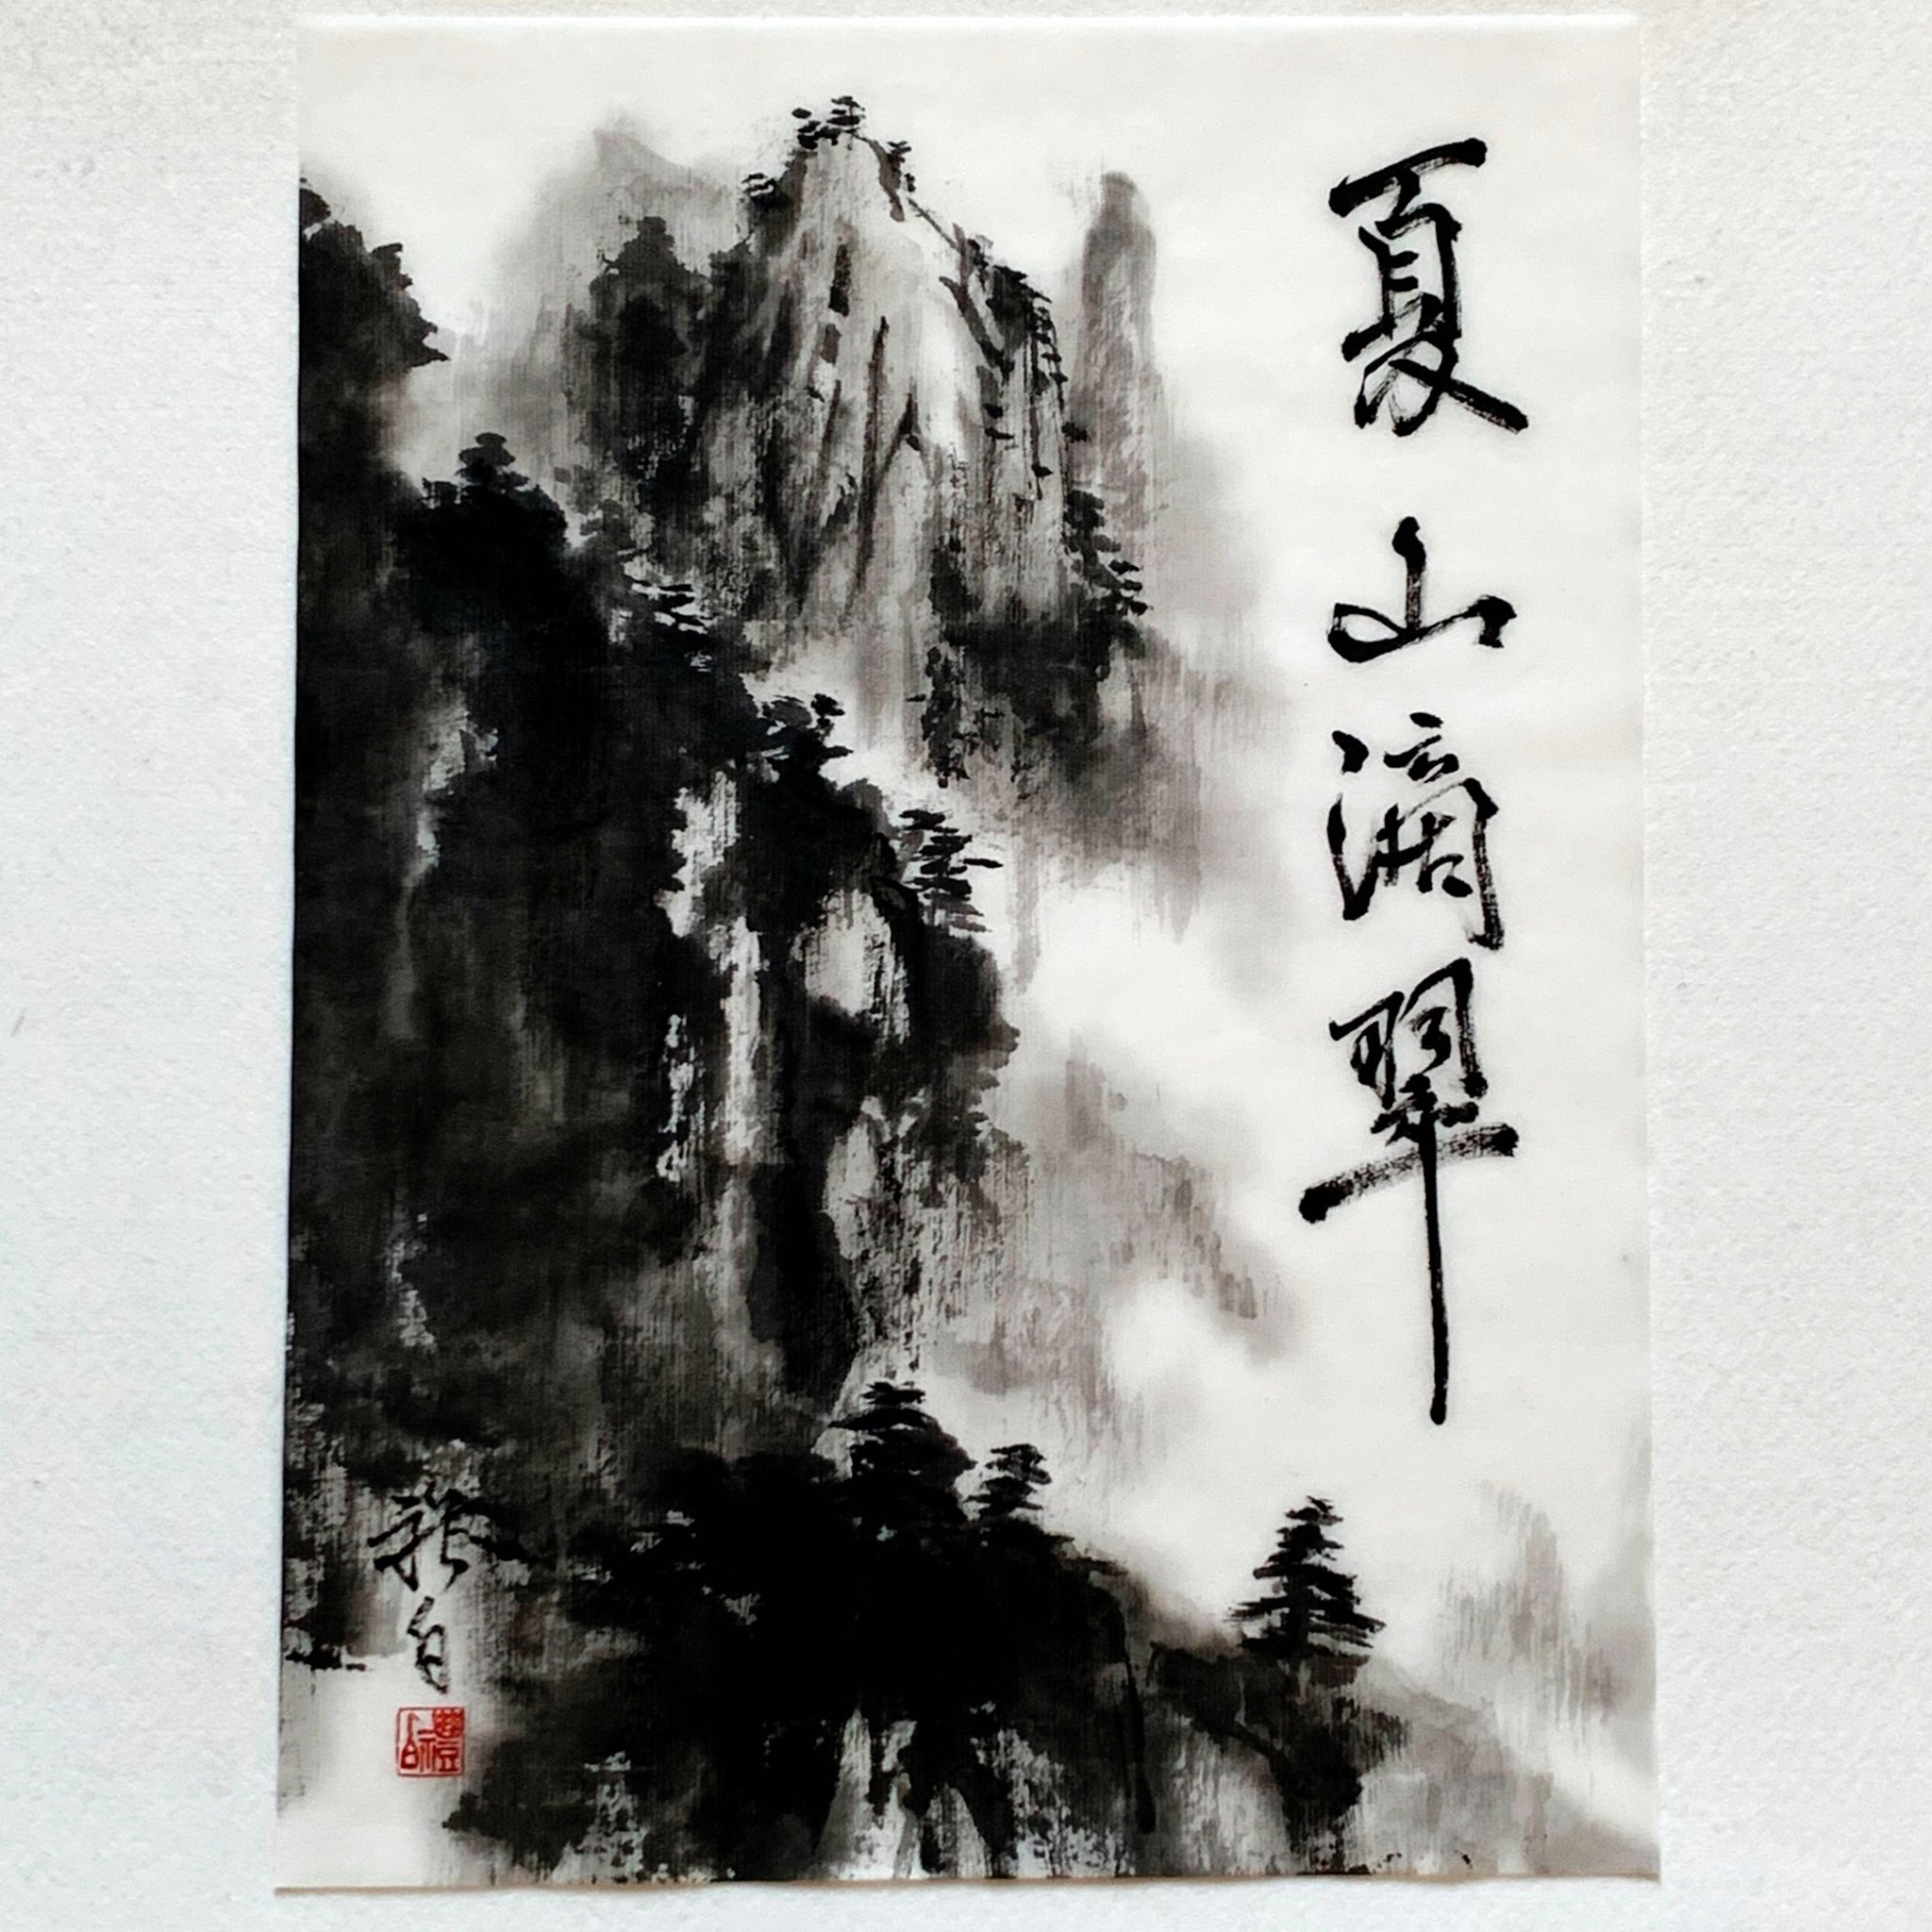 夏山滴翠